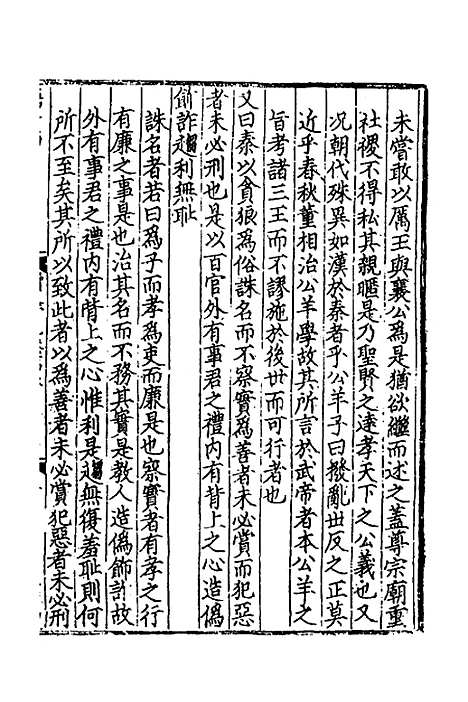 未嘗敢以厲王與襄公爲是猶欲繼而述之蓋尊宗廟重
社稷不得私其親暱是乃聖賢之達孝天下之公義也又
况朝代殊異如漢於秦者乎公羊子曰撥亂世反之正莫
近乎春秋董相治公羊學故其所言於武帝者本公羊之
旨考諸三王而不謬施於後世而可行者也
又曰秦以貪狼爲俗誅名而不察實爲善者未必賞而犯惡
者未必刑也是以百官外有事君之禮內有背上之心造僞
飾詐趨利無耻
誅名者若曰爲子而孝爲吏而廉是也察實者有孝之行
有廉之事是也治其名而不務其實是教人造僞飾詐故
外有事君之禮內有背上之心惟利是趨無復羞耻則何
所不至矣其所以致此者以爲善者未必賞犯惡者未必刑